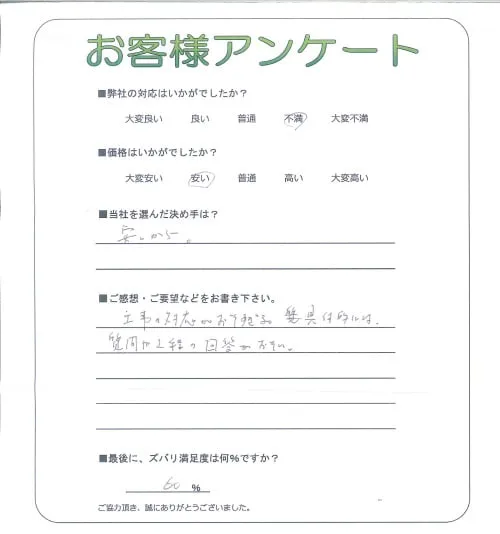 お客様アンケート
■弊社の対応はいかがでしたか?
大変良い 良い 普通 不満 大変不満
■価格はいかがでしたか?
大変安い 安い 普通 高い 大変高い
■当社を選んだ決め手は?
安いから。
■ご感想・ご要望などをお書き下さい。
工事の対応がお
質問 の回答がおそい。
■最後に、ズバリ満足度は何%ですか?
60 %
ご協力頂き、誠にありがとうございました。